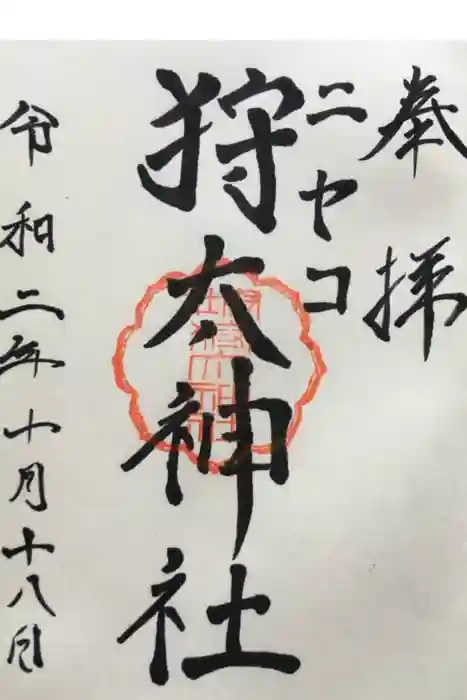 奉拝
ニセコ
狩太神社
令和二年十月十八日